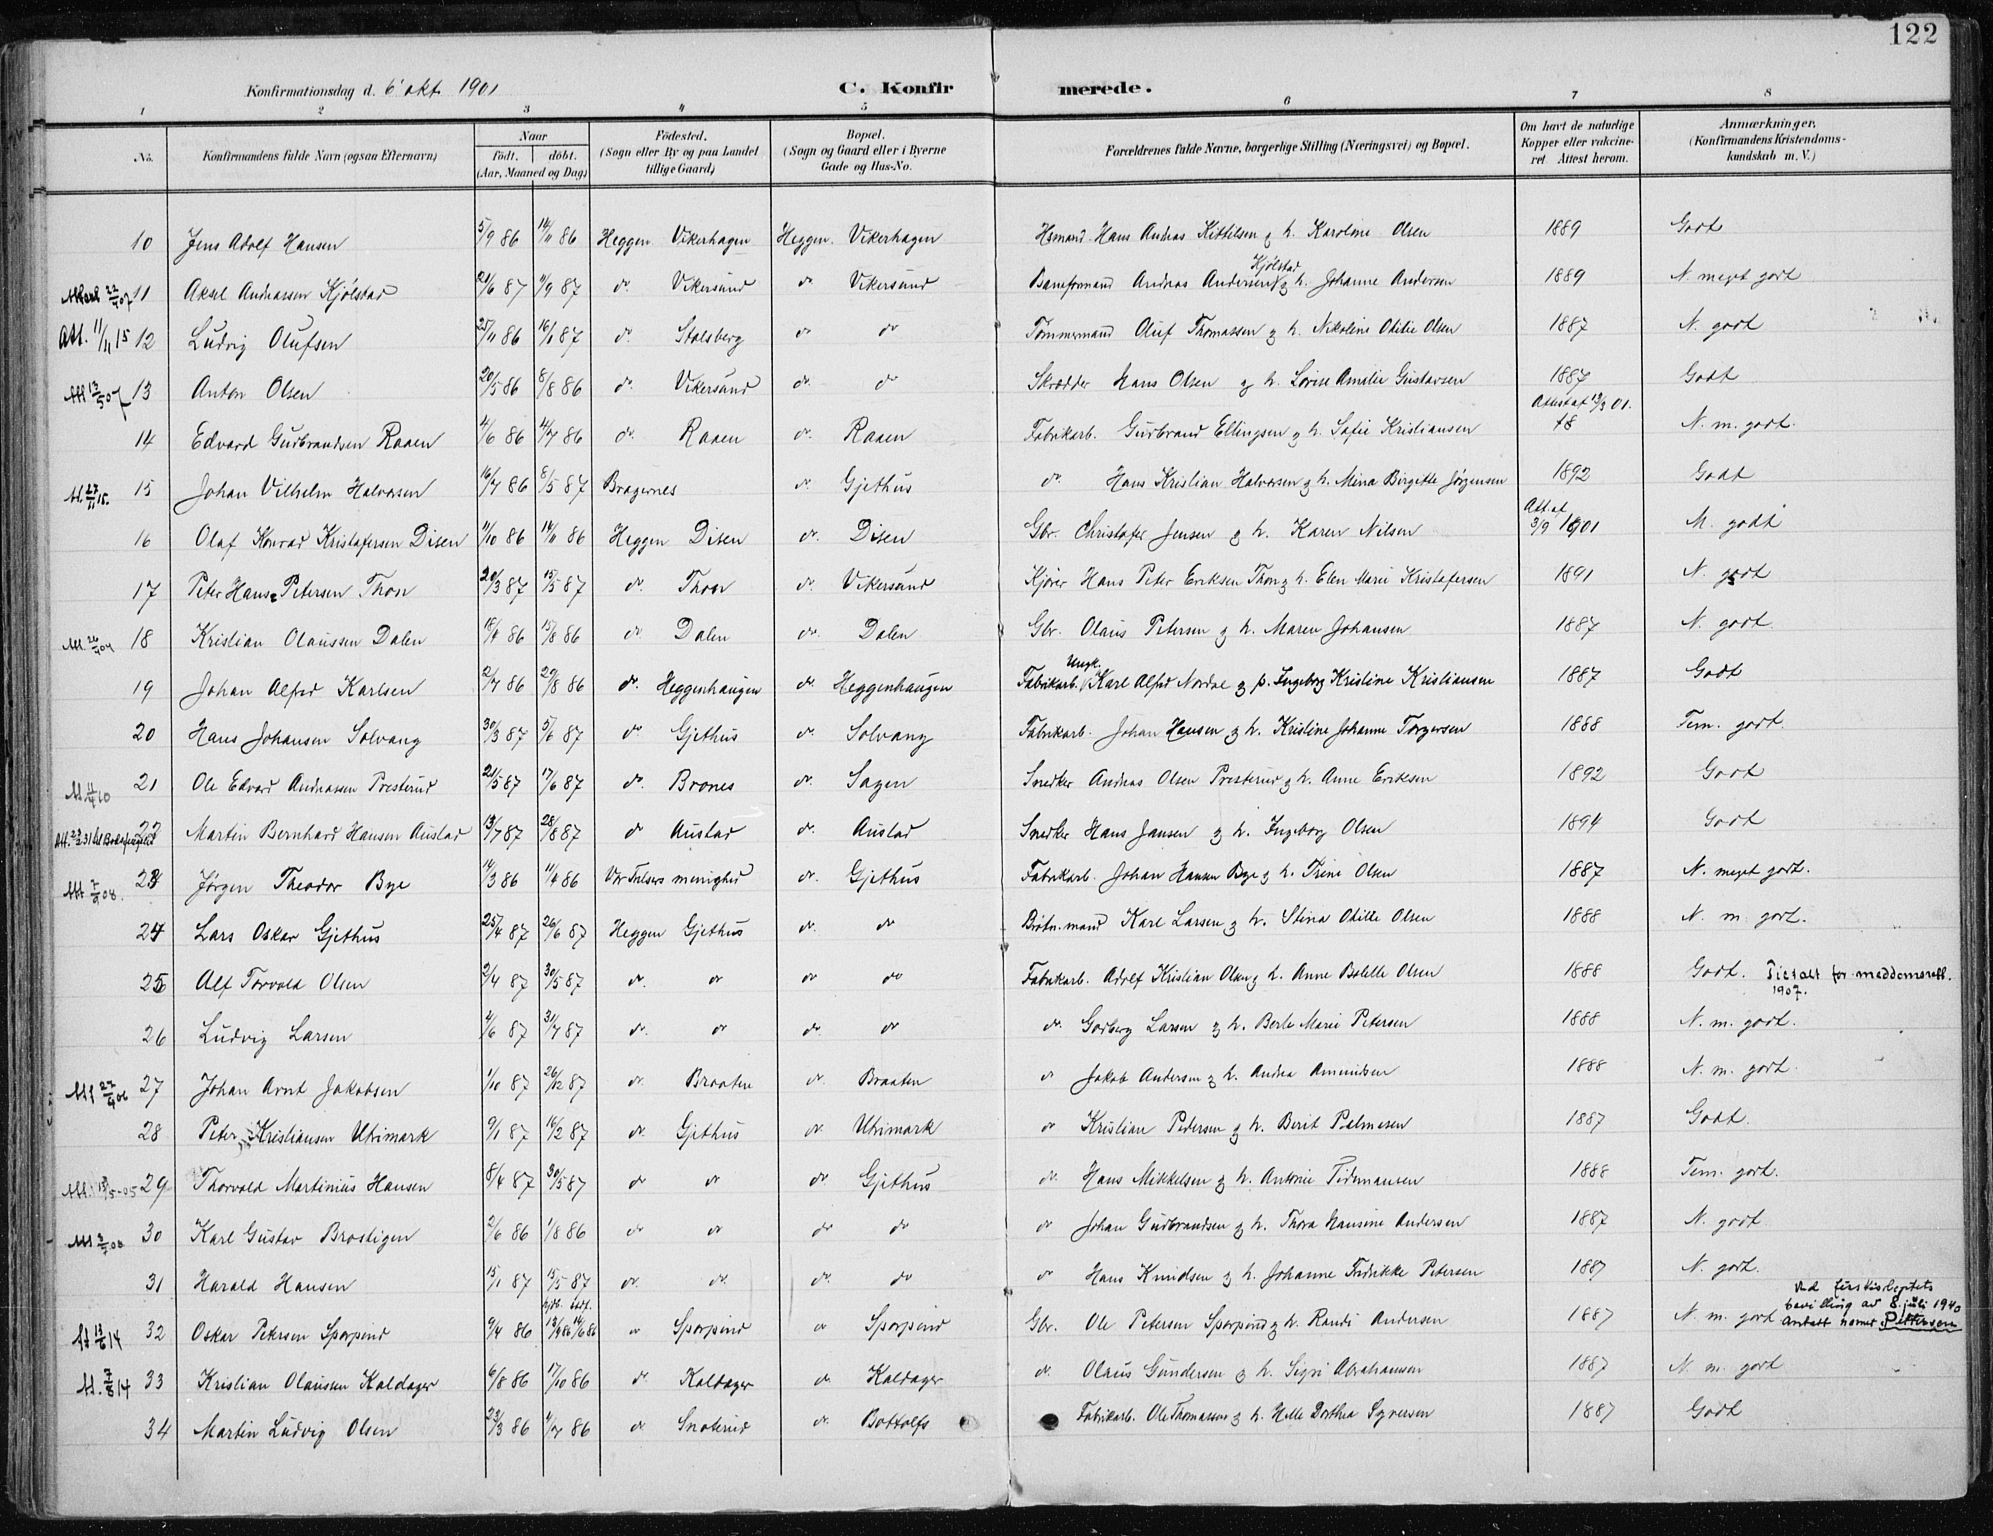 122
Konfirmationsdag d. 6' okt. 1901 C. Konfirmerede.
1 2 3 4 5 6 7 8
No. Konfirmandens fulde Navn (ogsaa Efternavn) Naar født. døbt. (Aar, Maaned og Dag) Fødested. (Sogn eller By og paa Landet tillige Gaard) Bopæl. (Sogn og Gaard eller i Byerne Gade og Hus-No. Forældrenes fulde Navne, borgerlige Stilling (Næringsvei) og Bopæl. Om havt de naturlige Kopper eller vakcineret Attest herom. Anmærkninger, (Konfirmandens Kristendomskundskab m. V.)
10 Jens Adolf Hansen 5/9 86 14/11 86 Heggen Vikerhagen Heggen. Vikerhagen Hsmand Hans Andras Kittilsen g h. Karoline Olsen 1889 Godt
11 Aksel Andreassen Kjølstad 21/6 87 11/9 87 do. Vikersund do Vikersund Baneformand Andreas Andersen Kjølstad g h. Johanne Andersen 1889 N. meget godt
Att. 11/11 15 12 Ludvig Olufsen 25/11 86 16/1 87 do. Stalsberg do do Tømmermand Oluf Thomassen g h. Nikoline Otilie Olsen 1887 N. godt
Att 13/5 07 13 Anton Olsen 20/5 86 8/8 86 do. Vikersund do. do Skrædder Hans Olsen g h. Lovise Amalie Gustavsen 1887 Godt
14 Edvard Gudbrandsen Raaen 4/6 86 4/7 86 do. Raaen do. Raaen Fabrikarb. Gudbrand Ellingsen g h. Sofie Kristiansen Attest af 19/3 01. N. m. godt.
15 Johan Vilhelm Halvorsen 16/7 86 8/5 87 Bragernes do. Gjethus do. Hans Kristian Halvorsen g h. Mina Birgitte Jørgensen 1892 Godt
16 Olaf Konrad Kristofersen Disen 11/10 86 14/11 86 Heggen Disen do. Disen Gbr. Christofer Jensen g h. Karen Nilsen Att. af 3/9 1901 M. godt
17 Peter Hans Petersen Thon 20/3 87 15/5 87 do. Thon do Vikersund Kjører Hans Peter Eriksen Thon g h. Elen Marie Kristofersen 1891 N. godt
18 Kristian Olaussen Dalen 18/4 86 15/8 86 do Dalen do. Dalen Gbr. Olaus Petersen g h. Maren Johansen 1887 N. godt
19 Johan Alfred Karlsen 2/7 86 29/8 86 do. Heggenhaugen do. Heggenhaugen Fabrikarb. Ungk. Karl Alfred Nordal g p. Ingeborg Kristine Kristiansen 1887 Godt
20 Hans Johansen Solvang 30/3 87 5/6 87 do Gjethus do. Solvang Fabrikarb. Johan Hansen g h. Kristine Johanne Torgersen 1888 Tem. godt.
21 Ole Edvard Andreassen Presterud 21/5 87 17/6 87 do. Brones do. Sagen Snedker Andreas Olsen Presterud g h. Anne Eriksen 1892 Godt
22 Martin Bernhard Hansen Austad 13/7 87 28/8 87 do Austad do. Austad Snedker Hans Jansen g h. Ingeborg Olsen 1894 Godt
23 Jørgen Theodor Bye 14/3 86 11/4 86 Vor Frelsers menighed do. Gjethus Fabrikarb. Johan Hansen Bye g h. Trine Olsen 1887 N. meget godt.
24 Lars Oskar Gjethus 25/4 87 26/6 87 Heggen Gjethus do. do Karl Larsen g h. Stina Otilie Olsen 1888 N. m. godt.
25 Alf Torvald Olsen 2/4 87 30/5 87 do. do do do Fabrikarb. Adolf Kristian Olsen g h. Anne Bolette Olsen 1888 Godt. Tiltalt for meddomsrett. 1907.
26 Ludvig Larsen 4/6 87 31/7 87 do. do do. do do. Larsen g h. Berte Marie Petersen 1888 N. m. godt.
Att 27/4 06 27 Johan Arnt Jakobsen 1/10 87 26/12 87 do. Braaten do. Braaten do Jakob Andersen g h. Andrea Amundsen 1888 N. m. godt.
28 Peter Kristiansen Utrimark 9/1 87 16/2 87 do. Gjethus do. Utrimark do Kristian Pedersen g h. Berit Palmesen 1887 Godt.
29 Thorvald Martinius Hansen 8/4 87 30/5 87 do do do Gjethus do. Hans Mikkelsen g h. Antonie Tidemansen 1888 Tem. godt.
30 Karl Gustav Brostigen 2/6 86 1/8 86 do do do do do Johan Gudbrandsen g h. Thora Hansine Andersen 1887 N. godt
31 Harald Hansen 15/1 87 15/5 87 do. do. do. do do Hans Knudsen g h. Johanne Fredrikke Petersen 1887 N. godt.
32 Oskar Petersen Sparpind 9/4 86 do Sparpind do Sparpind Gbr. Ole Petersen Sparpind g h. Randi Andersen 1887 N. m. godt Ved fylkisleptets bevilling av 8. juli 1940 antatt navnet Pettersen
33 Kristian Olausen Kaldager 6/8 86 17/10 86 do Kaldager do. Kaldager do. Olaus Gundersen g h. Sigri Abrahamsen 1887 N. m. godt
34 Martin Ludvig Olsen 22/3 86 4/7 86 do Snoterud do. Bottolfs Fabrikarb. Ole Thomassen g h. Helle Dorthea Syversen 1887 Godt